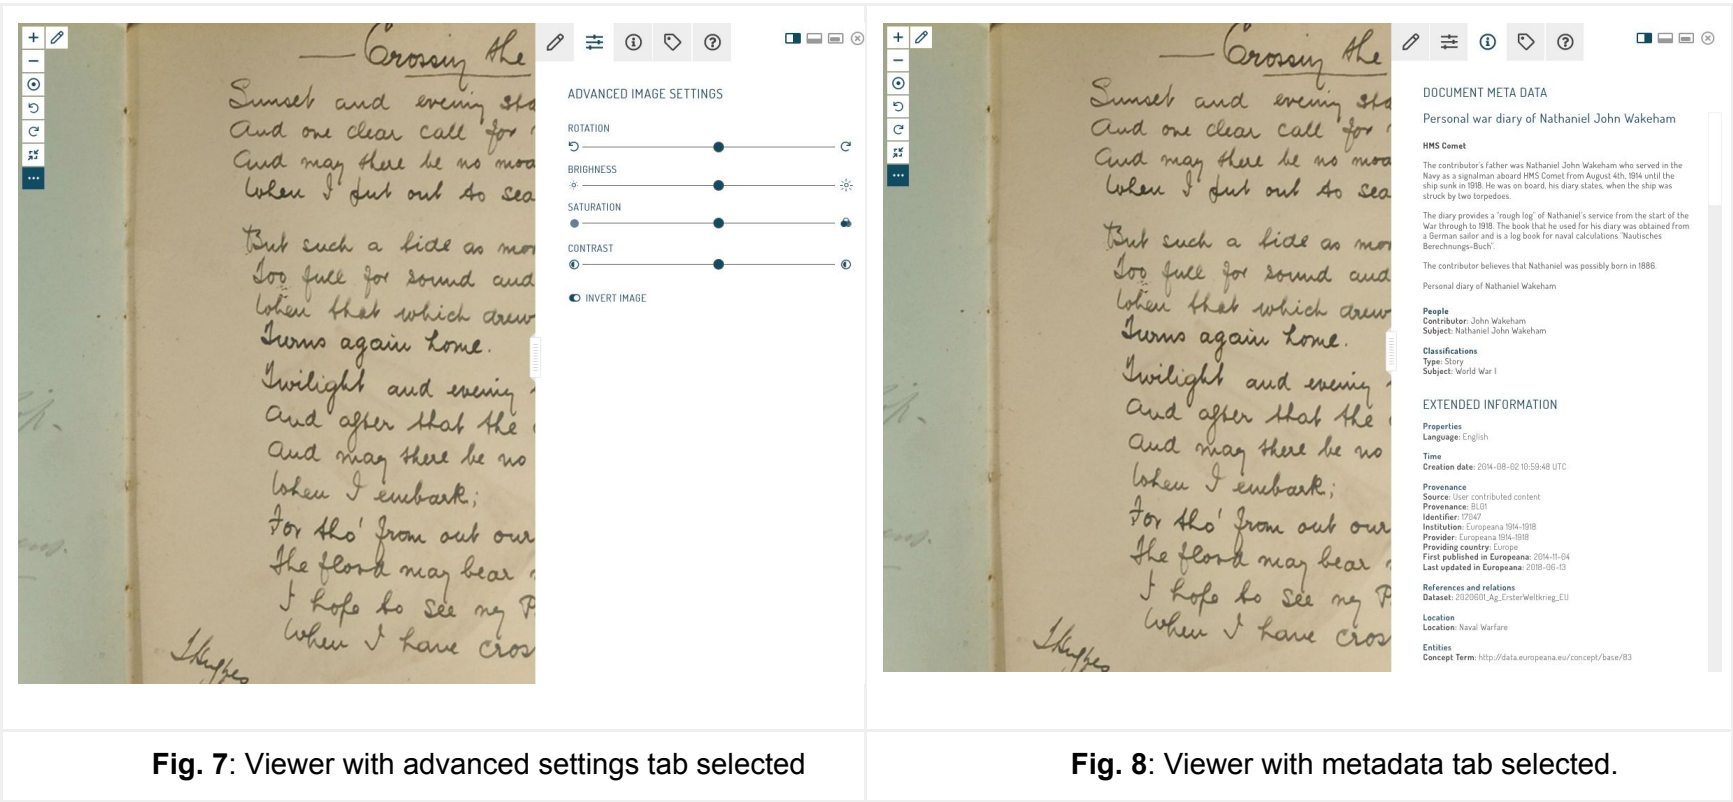 Crossing the
Sunset and evening sta
And one clear call for
And may there be no moa
When I put out to sea
But such a tide as mov
Too full for sound and
When that which drew
Turns again home.
Twilight and evening
And after that the
And may there be no
When I embark;
For tho' from out our
The flood may bear
I hope to see my P
When I have cros
ADVANCED IMAGE SETTINGS
ROTATION
BRIGHNESS
SATURATION
CONTRAST
INVERT IMAGE
Fig. 7: Viewer with advanced settings tab selected
Crossing the
Sunset and evening sta
And one clear call for
And may there be no moa
When I put out to sea
But such a tide as mov
Too full for sound and
When that which drew
Turns again home.
Twilight and evening
And after that the
And may there be no
When I embark;
For tho' from out our
The flood may bear
I hope to see my P
When I have cros
DOCUMENT META DATA
Personal war diary of Nathaniel John Wakeham
HMS Comet
The contributor's father was Nathaniel John Wakeham who served in the
Navy as a signalman aboard HMS Comet from August 4th, 1914 until the
ship sunk in 1918. He was on board, his diary states, when the ship was
struck by two torpedoes.
The diary provides a "rough log" of Nathaniel's service from the start of the
War through to 1918. The book that he used for his diary was obtained from
a German sailor and is a log book for naval calculations "Nautisches
Berechnungs-Buch".
The contributor believes that Nathaniel was possibly born in 1886.
Personal diary of Nathaniel Wakeham
People
Contributor: John Wakeham
Subject: Nathaniel John Wakeham
Classifications
Type: Story
Subject: World War I
EXTENDED INFORMATION
Properties
Language: English
Time
Creation date: 2014-08-02 10:59:48 UTC
Provenance
Source: User contributed content
Provenance: BL01
Identifier: 17847
Institution: Europeana 1914-1918
Provider: Europeana 1914-1918
Providing country: Europe
First published in Europeana: 2014-11-04
Last updated in Europeana: 2018-06-13
References and relations
Dataset: 2020601_Ag_ErsterWeltkrieg_EU
Location
Location: Naval Warfare
Entities
Concept Term: http://data.europeana.eu/concept/base/83
Fig. 8: Viewer with metadata tab selected.